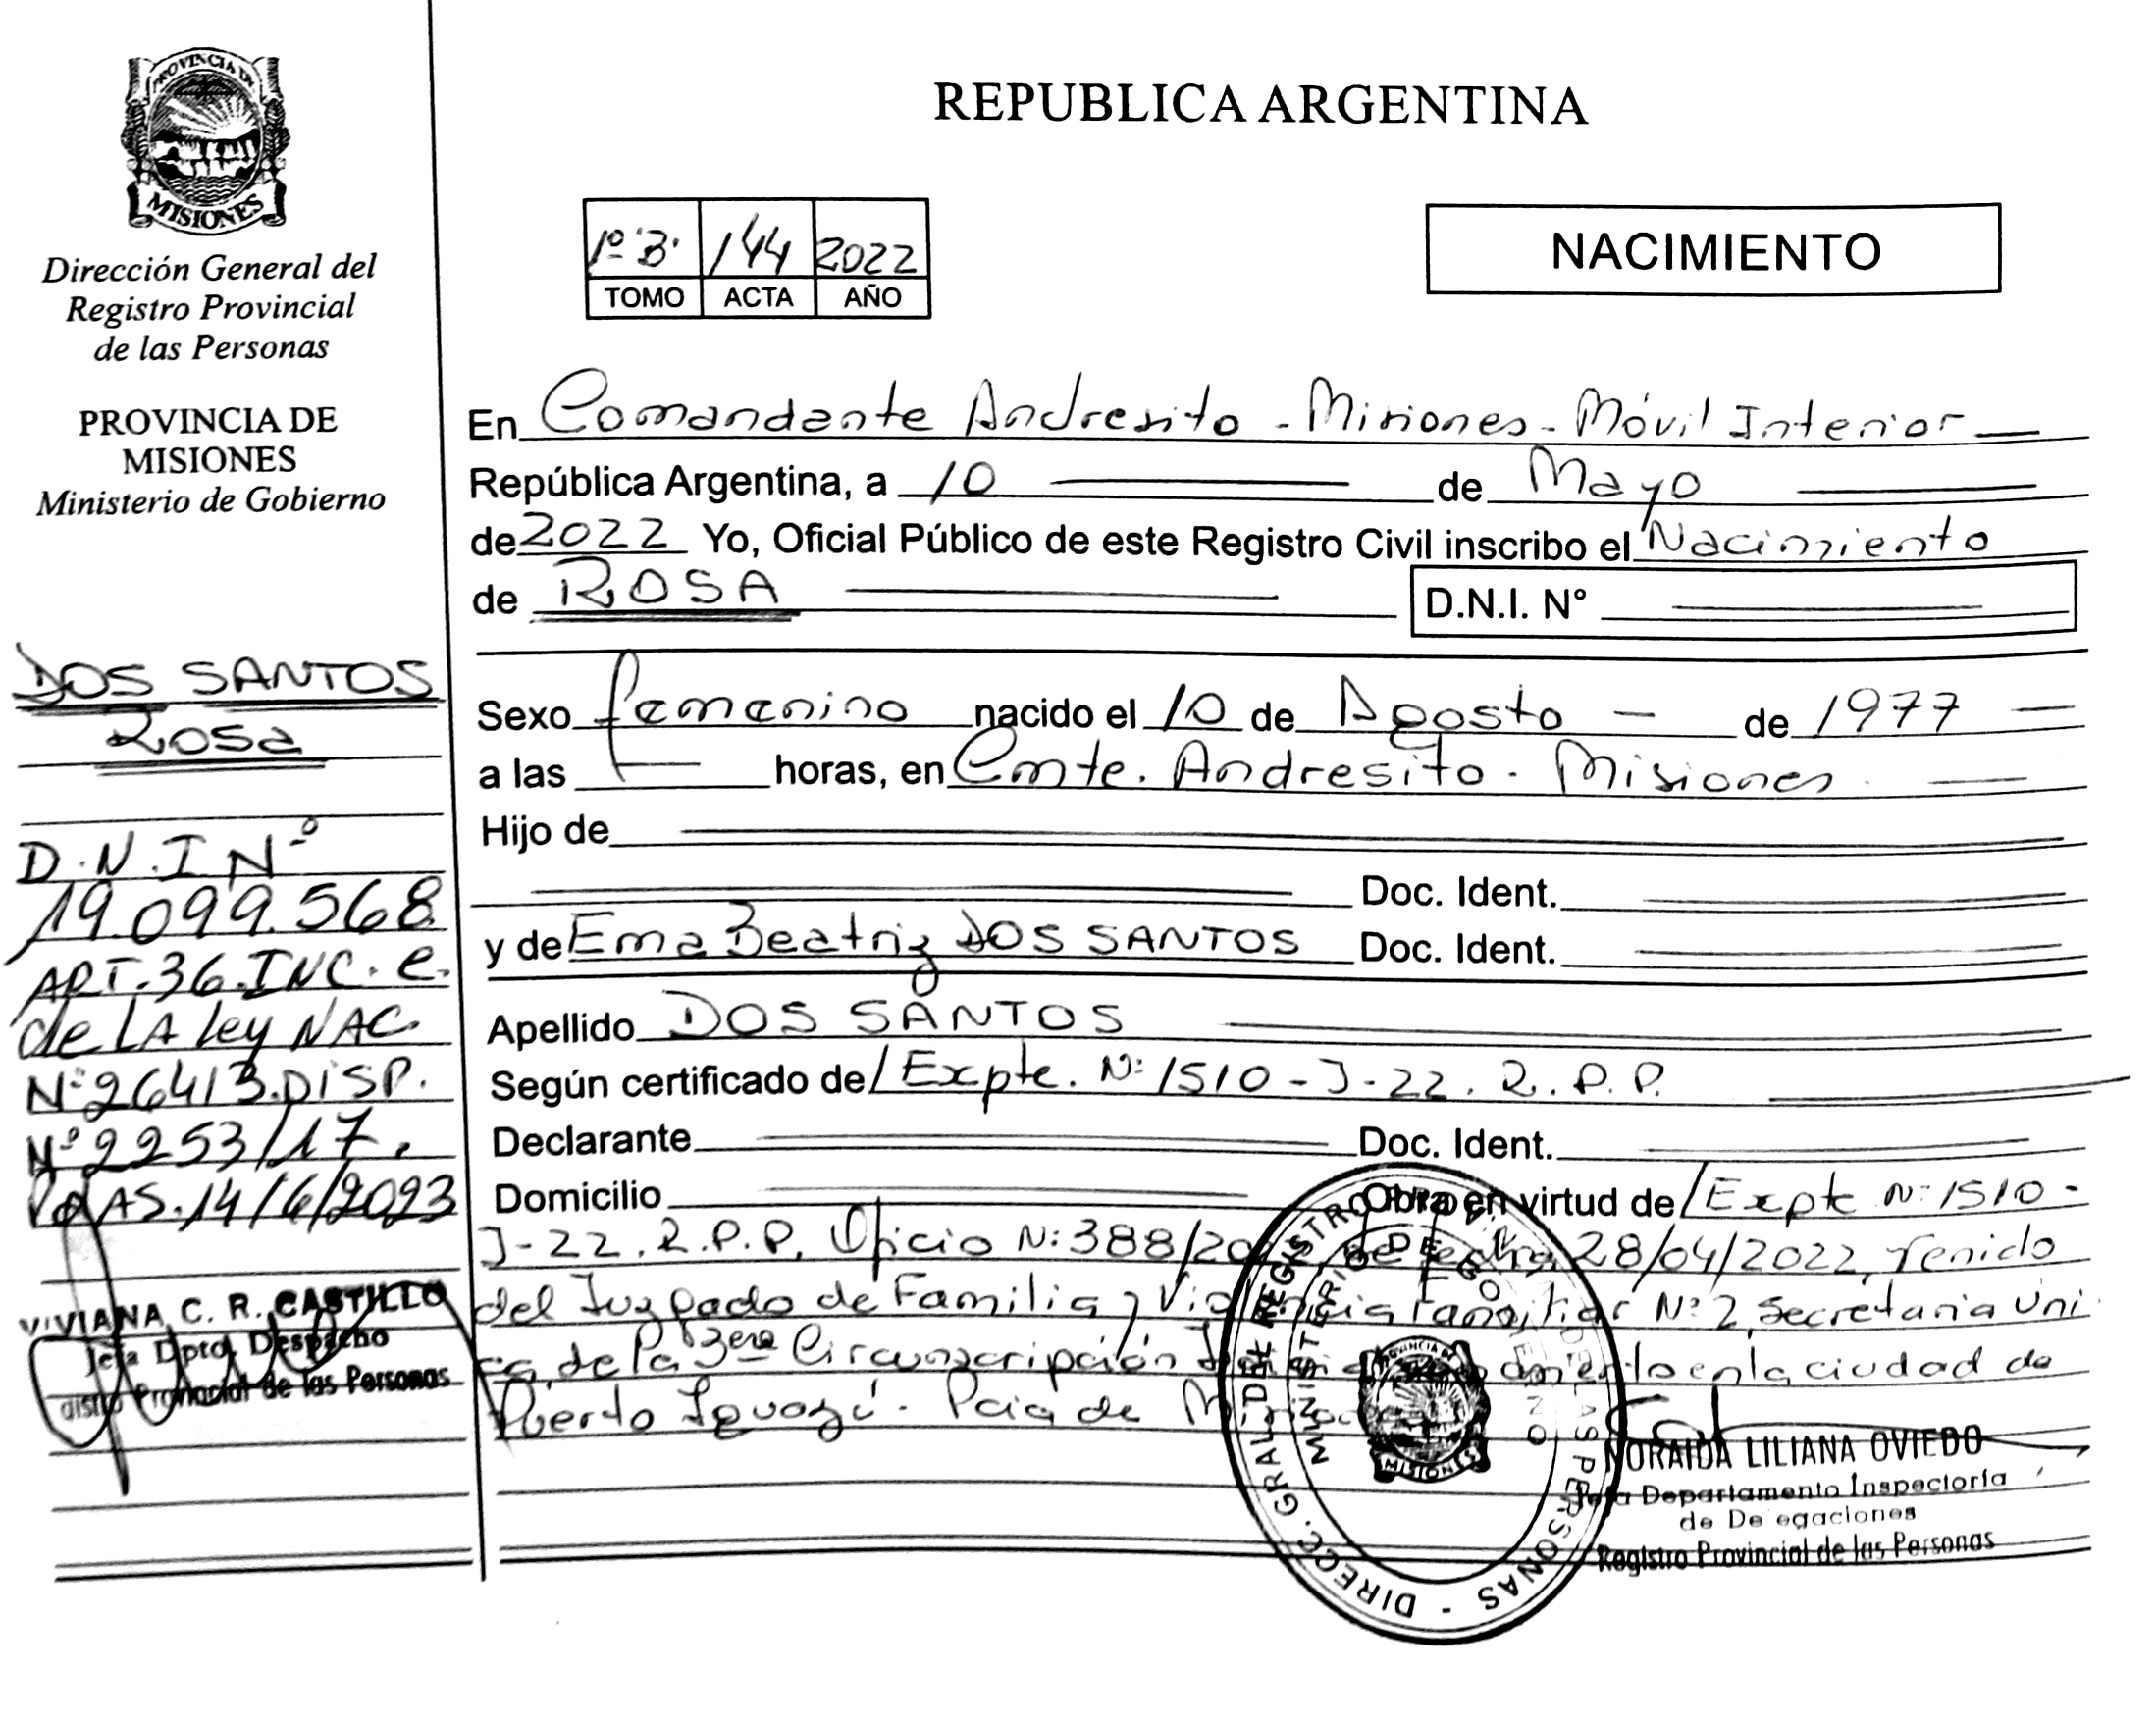 PROVINCIA DE
MISIONES
Dirección General del
Registro Provincial
de las Personas
PROVINCIA DE
MISIONES
Ministerio de Gobierno
DOS SANTOS
Rosa
D.N.I Nº
19.099.568
ART.36.INC. e.
de LA ley NAC.
Nº26413.DISP.
Nº2253/17.
14/6/2023
VIVIANA C. R. CASTILLO
Jefa Dpto. Despacho
Provincial de las Personas
REPUBLICA ARGENTINA
1º B. 144 2022
TOMO ACTA AÑO
NACIMIENTO
En Comandante Andresito - Misiones - Móvil Interior
República Argentina, a 10 de Mayo
de 2022 Yo, Oficial Público de este Registro Civil inscribo el Nacimiento
de ROSA D.N.I. N°
Sexo femenino nacido el 10 de Agosto - de 1977
a las horas, en Cmte. Andresito - Misiones
Hijo de
Doc. Ident.
y de Ema Beatriz DOS SANTOS Doc. Ident.
Apellido DOS SANTOS
Según certificado de/Expte. Nº 1510-J-22. R.P.P.
Declarante Doc. Ident.
Domicilio Obra en virtud de/Expte Nº 1510-
J-22. R.P.P. Oficio Nº 388/ de fecha 28/04/2022, venido
del Juzgado de Familia y Violencia Familiar Nº 2, Secretaria Uni
ca, de la 3era Circunscripción en la ciudad de
Puerto Iguazú - Pcia de
DIRECC. GRAL. DE REGISTRO PERSONAS
MINISTERIO DE GOBIERNO
PROVINCIA DE
MISIONES
NORAIDA LILIANA OVIEDO
Jefa Departamento Inspectoría
de De egaciones
Registro Provincial de las Personas